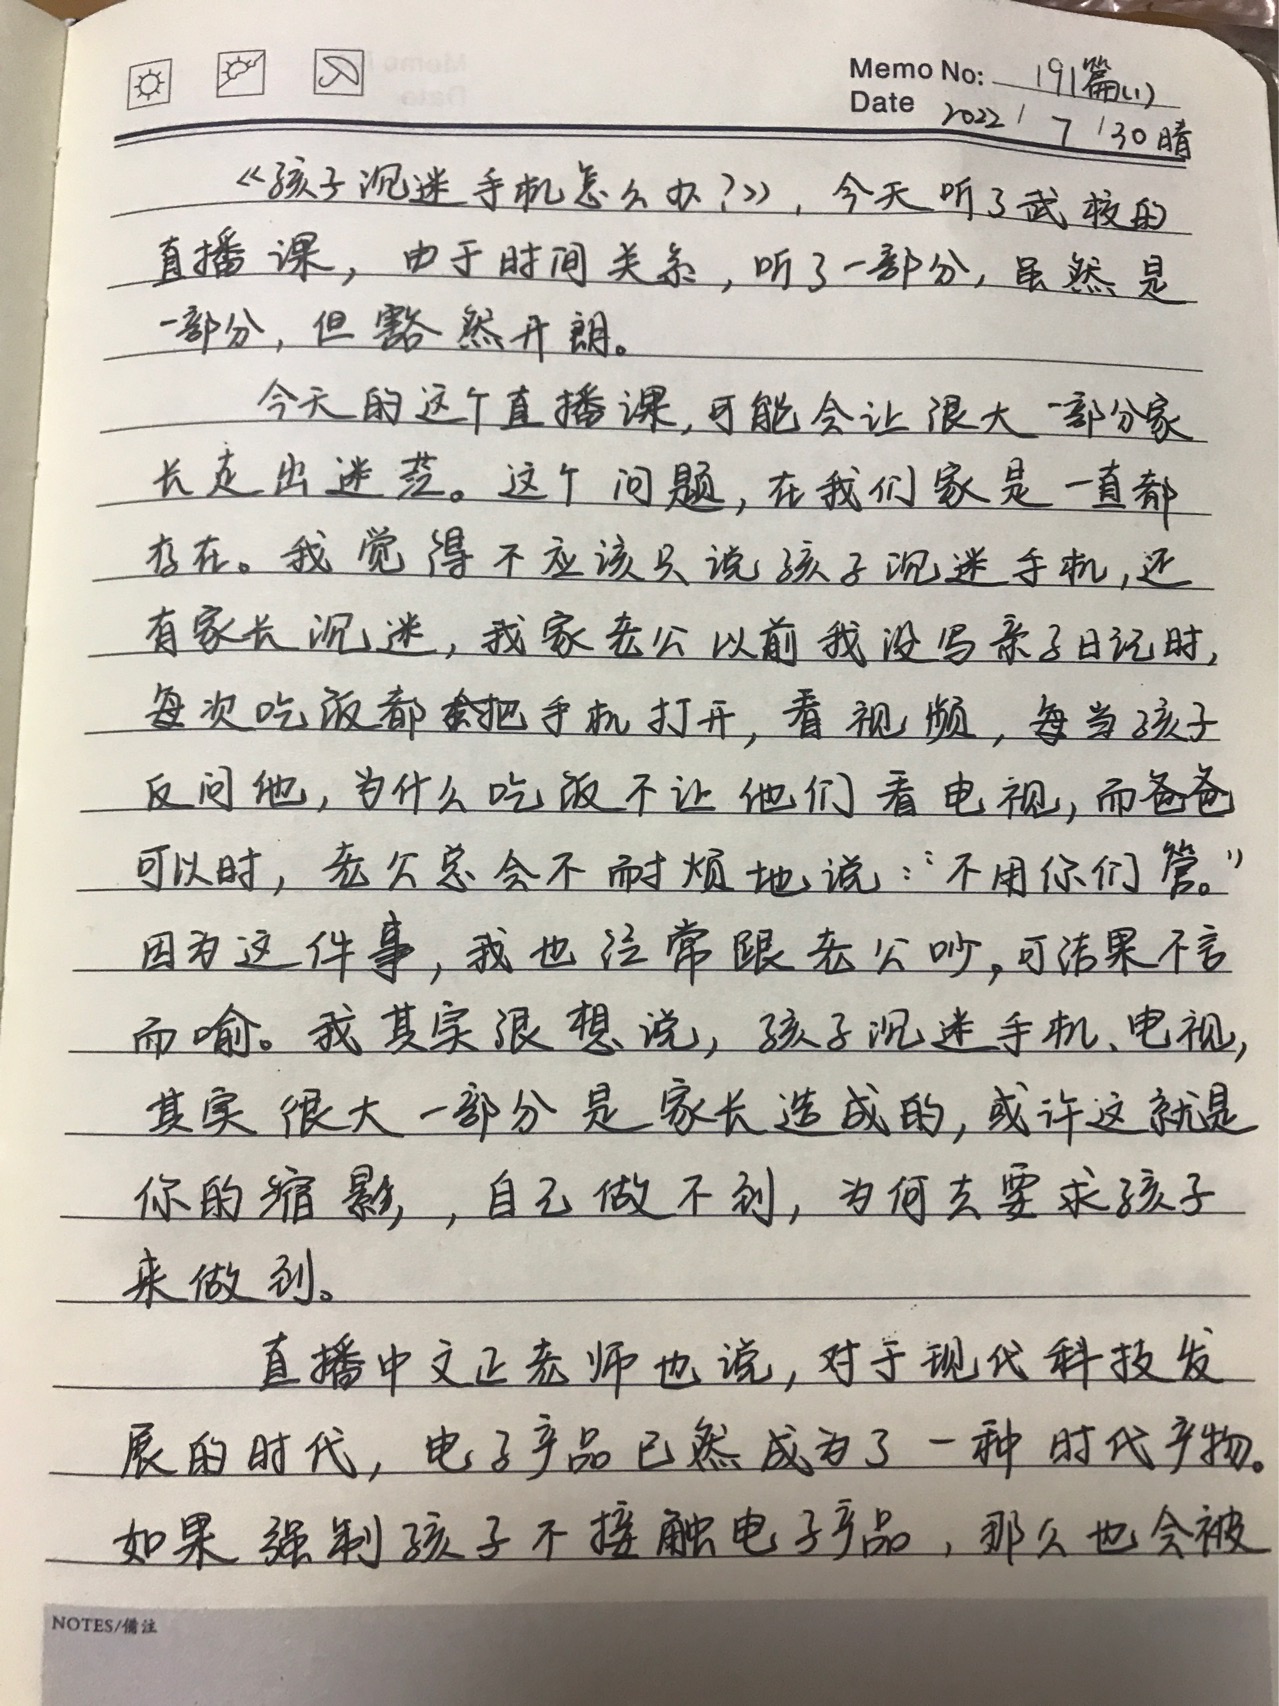 Memo No: 191篇(1)
Date 2022/7/30晴
《孩子沉迷手机怎么办?》,今天听了武校的
直播课,由于时间关系,听了一部分,虽然是
一部分,但豁然开朗。
今天的这个直播课,可能会让很大一部分家
长走出迷茫。这个问题,在我们家是一直都
存在。我觉得不应该只说孩子沉迷手机,还
有家长沉迷,我家老公以前我没写亲子日记时,
每次吃饭都把手机打开,看视频,每当孩子
反问他,为什么吃饭不让他们看电视,而爸爸
可以时,老公总会不耐烦地说:“不用你们管。”
因为这件事,我也经常跟老公吵,可结果不言
而喻。我其实很想说,孩子沉迷手机、电视,
其实很大一部分是家长造成的,或许这就是
你的缩影,,自己做不到,为何去要求孩子
来做到。
直播中文正老师也说,对于现代科技发
展的时代,电子产品已然成为了一种时代产物。
如果强制孩子不接触电子产品,那么也会被
NOTES/備注